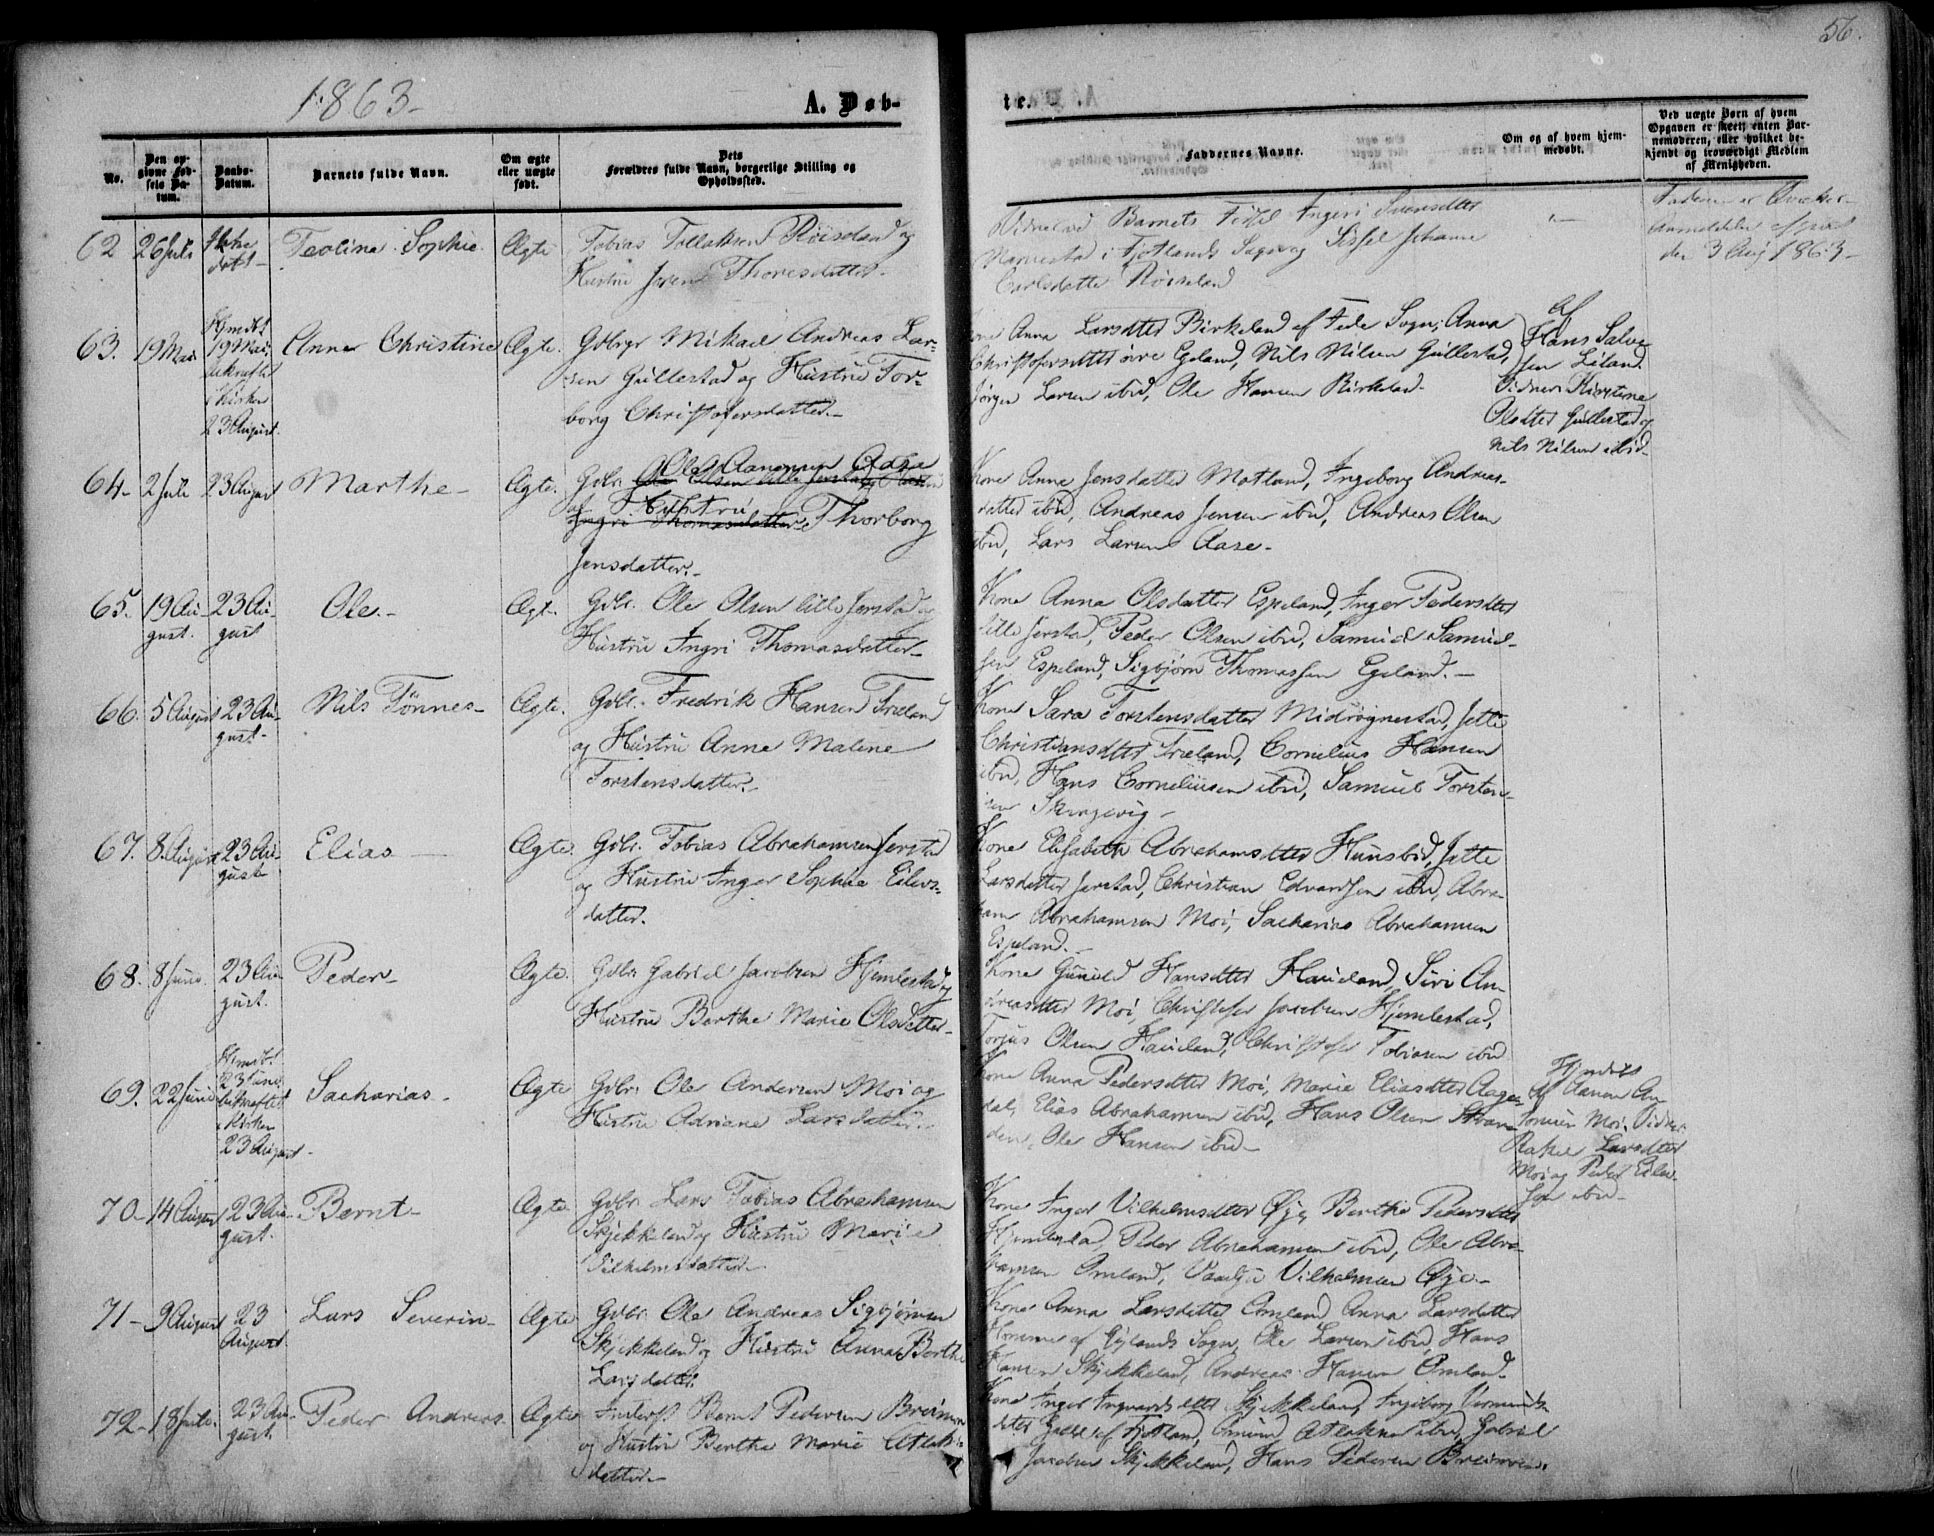 56.
1863-
A. Døb-
te.
No.
Den op-
givne Fød-
sels Da-
tum.
Daabs-
Datum.
Barnets fulde Navn.
Om ægte
eller uægte
født.
Dets
Forældres fulde Navn, borgerlige Stilling og
Opholdssted.
Faddernes Navne.
Om og af hvem hjem-
medøbt.
Ved uægte Børn af hvem
Opgaven er skeet, enten Bar-
nemoderen, eller hvilket be-
kjendt og troværdigt Medlem
af Menigheden.
62 26 Juli Ikke
døbt-
Teoline Sophie. Ægte
Tobias Tollaksen Röiseland og
Hustru Thoresdatter.
Vidner ved Barnets Födsel Ingeri Svensdtter
i Fjotlands Sogn og Sissel Johanne
Carlsdatter
Faderen er Qvæker-
den 3 Aug 1863-
63. 19 Mai Hjmdbt
19 Mai,
bekræftet
i Kirken
23 August.
Anne Christine Ægte.
Gdbr Mikael Andreas Lar-
sen Gullestad og Hustru Tor-
borg Christofersdatter.-
Kone Anna Larsdtter Birkeland af Fede Sogn, Anna
Christofersdtter övre Egeland, Nils Nilsen Gullestad,
Jörgen Larsen ibid, Ole Hansen Birkeland.
Af
Hans Salve-
sen Liland.
Vidner: Kirstine
Olsdtter Gullestad og
Nils Nilsen ibid-
64- 2 Juli 23 August Marthe- Ægte.
Gdbr. Ole Aanensen Aase
Ole Olsen lille Jerstad og Hustru
og Hustru
Ingri Thomasdatter. Thorborg
Jensdatter.-
Kone Anna Jensdatter Motland, Ingeborg Andreas-
datter ibid, Andreas Jensen ibid, Andreas Olsen
ibid, Lars Larsen Aase-
65. 19 Au-
gust. 23 Au-
gust Ole.- Ægt.
Gdbr. Ole Olsen lille Jerstad og
Hustru Ingri Thomasdatter-
Kone Anna Olsdatter Espeland, Inger Pedersdtter
lille Jerstad, Peder Olsen ibid, Samuel Samuel-
sen Espeland, Sigbjörn Thomassen Egeland.-
66. 5 August 23 Au-
gust- Nils Tönnes- Ægte.
Gdbr. Fredrik Hansen Træland
og Hustru Anne Malene
Torstensdatter.-
Kone Sara Torstensdatter Midrögnestad, Jette
Christiansdtter Træland, Cornelius Hansen
ibid, Hans Corneliusen ibid, Samuel Torsten-
sen
67. 8. August 23 Au-
gust- Elias Ægte.
Gdbr. Tobias Abrahamsen Jerstad
og Hustru Inger Sophie Eilers-
datter.
Kone Elisabeth Abrahamsdtter Hunsbed, Jette
Larsdatter Jerstad, Christian Edvardsen ibid, Abra-
ham Abrahamsen Moi, Sacharias Abrahamsen
Espeland.-
68. 8 Juni. 23 Au-
gust. Peder- Ægte.
Gdbr Gabriel Jacobsen Hjemlestad og
Hustru Berthe Marie Olsdatter-
Kone Gunild Hansdtter Haueland, Siri An-
dreasdtter Moi, Christofer Jacobsen Hjemlestad,
Torjus Olsen Haueland, Christofer Tobiasen ibid
69. 22 Juni Hjmdbt
23 Juni
bekræftet
i Kirken
23 August-
Sacharias- Ægte
Gdbr. Ole Andersen Moi og
Hustru Adriane Larsdatter.-
Kone Anna Pedersdtter Moi, Marie Eliasdtter Aage-
dal, Elias Abrahamsen ibid, Hans Olsen Stran-
den, Ole Hansen ibid-
Hjmdöbt
af Aanen An-
tonsen Moi, Vidner
Rakel Larsdtter
Moi og Peder Eilert-
sen ibid-
70- 14 August 23 Au-
gust. Bernt- Ægte
Gdbr. Lars Tobias Abrahamsen
Skjekkeland og Hustru Marie
Vilhelmsdatter-
Kone Inger Vilhelmsdtter Øye, Berthe Pedersdtter
Hjemlestad, Peder Abrahamsen ibid, Ole Abra-
hamsen Omland, Vilhelmsen Øye-
71- 9 August 23
August. Lars Severin- Ægte
Gdbr. Ole Andreas Sigbjörnsen
Skjekkeland og Hustru Anna Berthe
Larsdatter.
Kone Anna Larsdatter Omland, Anna Larsdatter
Homme af Gylands Sogn, Ole Larsen ibid, Hans
Hansen Skjekkeland, Andreas Hansen Omland.
72- 18 Juli. 23 Au-
gust. Peder Andreas- Ægte
Inderst Bernt Pedersen Breimoen
og Hustru Berthe Marie Atlaks-
datter-
Kone Inger Ingvardsdtter Skjekkeland, Ingeborg Vermunds-
dtter af Fjotland, Omund Atlaksen ibid, Gabriel
Jacobsen Skjekkeland, Hans Pedersen Breimoen.